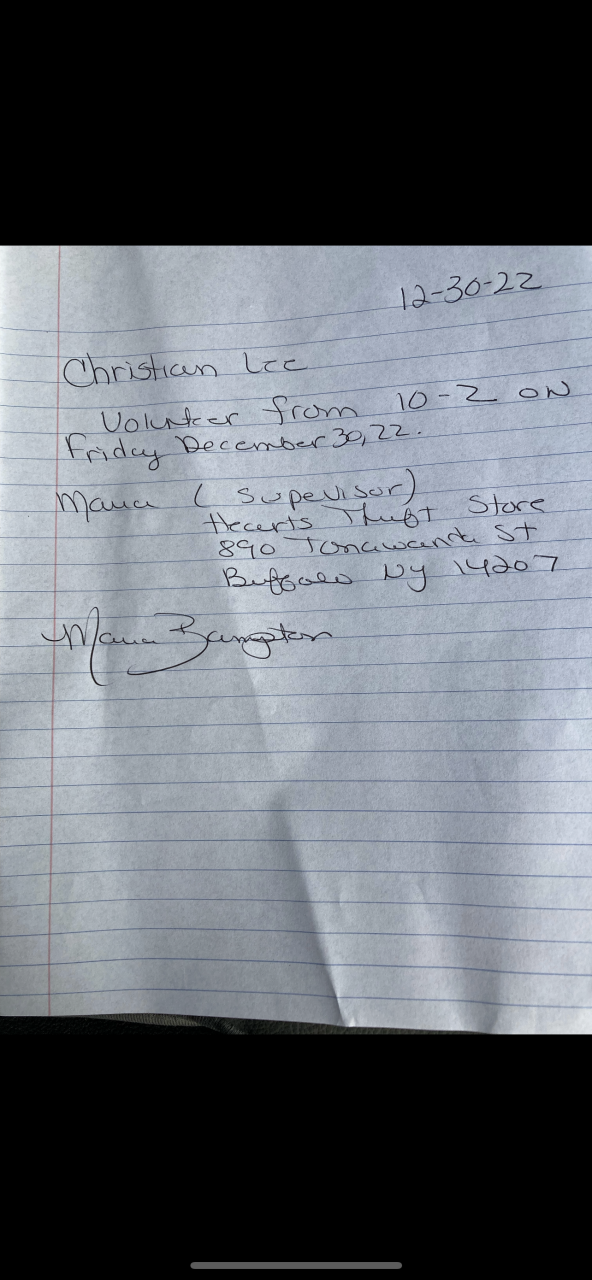 12-30-22
Christian Lee
Volunteer from 10-2 on
Friday December 30, 22.
Maria (Supevisor)
Hearts Thrift Store
890 Tonawanda St
Buffalo NY 14207
Maria